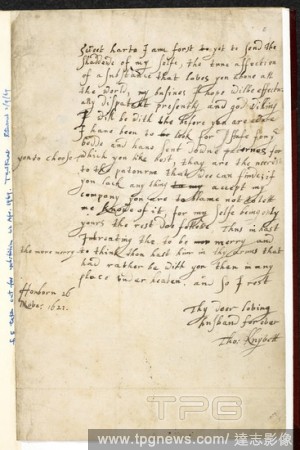 Sweet harte I am forst to yet to send the
shaddowe of my selfe, the true affection
of a substance that loves you above all
the World, my busines I hope wilbe effectu
ally dispatcht presently and god willing
I will be with the before you are
I have been to look for stuffe for ye
bedde and have sent downe patornes for
you to choose which you like best, thay are the neerest
to the patorne that wee can finde, if
you lack any thing accept my
company you are to blame not to lett
me knowe of it, for my selfe being only
yours the rest doe followe. Thus in hast
Intreating the to be merry and
the more merry to think thou hast him in thy armes that
had rather be with you then in any
place under heaven. and so I rest
Houborn 26
1621.
Thy deer loving
husband for ever
Tho: Knyvett
TPG
www.tpgnews.com/達志影像